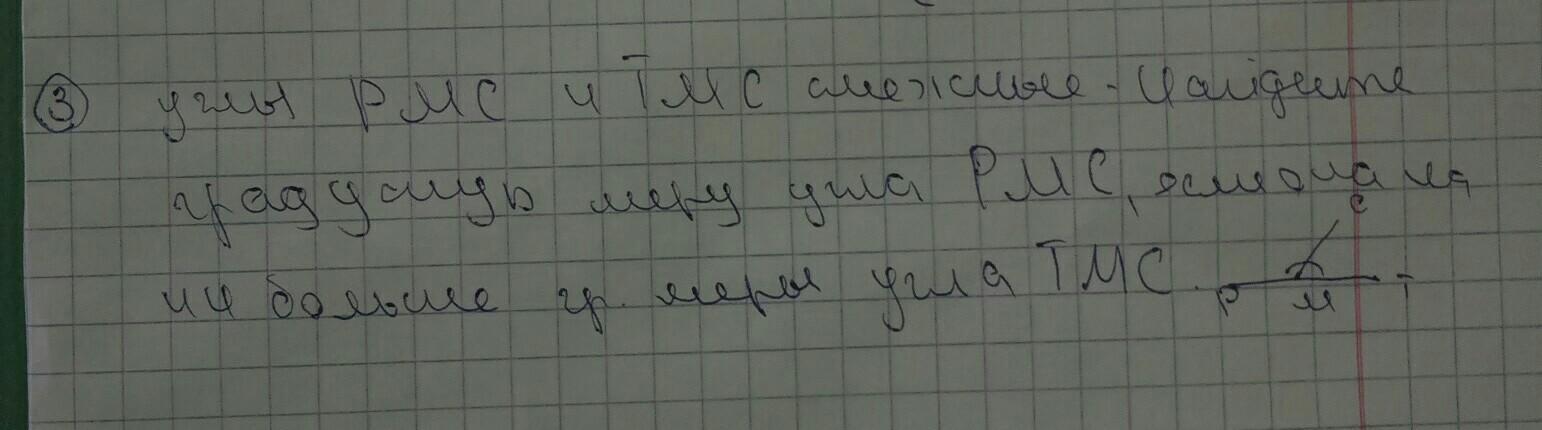 ③ углы РМС и ТМС смежные. Найдите
градусную меру угла РМС, если она на
больше гр. меры угла ТМС.
С
Р М Т